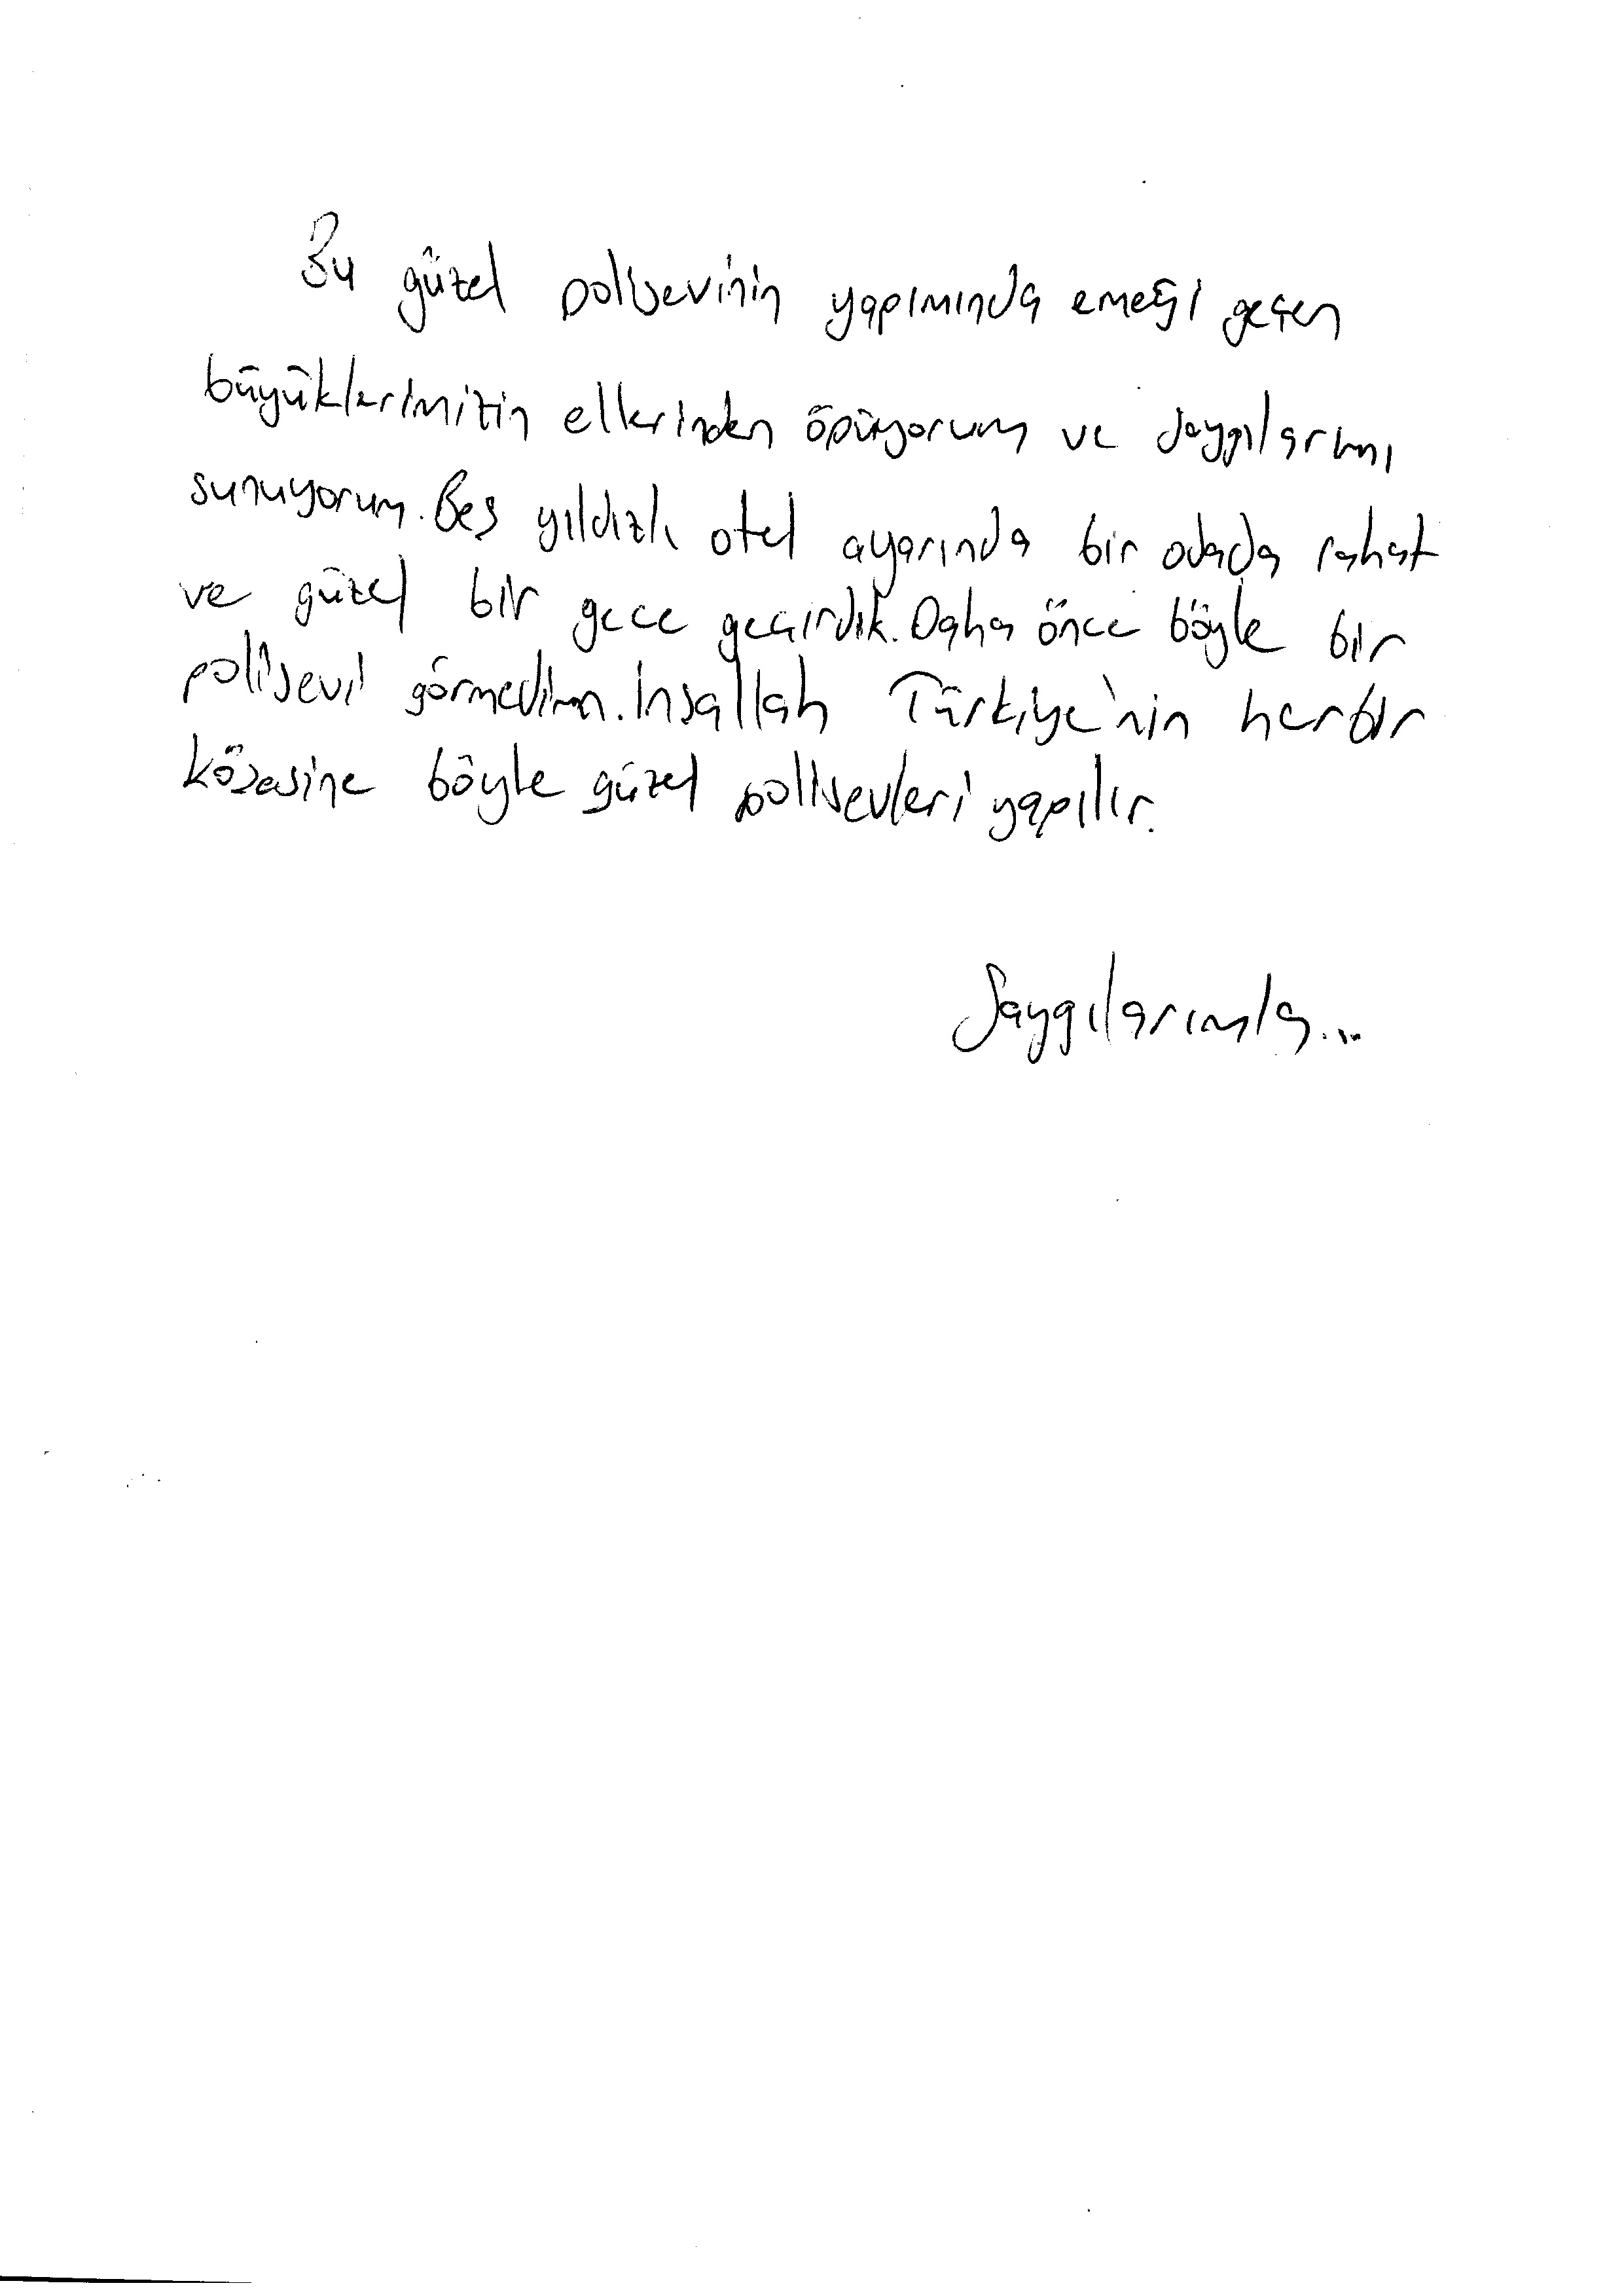 Bu güzel polisevinin yapımında emeği geçen
büyüklerimizin ellerinden öpüyorum ve saygılarımı
sunuyorum. Beş yıldızlı otel ayarında bir odada rahat
ve güzel bir gece geçirdik. Daha önce böyle bir
polisevi görmedim. İnşallah Türkiye'nin herbir
köşesine böyle güzel polisevleri yapılır.
Saygılarımla...